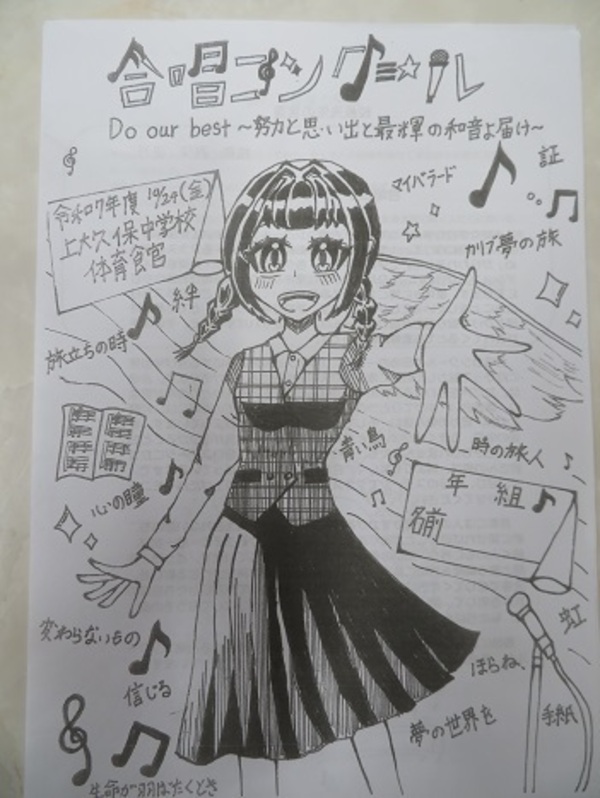 合唱コンクール
Do our best ~努力と思い出と最輝の和音よ届け~
令和7年度 10/24(金)
上大久保中学校
体育館
マイバラード
証
カリブ夢の旅
絆
旅立ちの時
青い鳥
時の旅人
年 組
名前
心の瞳
変わらないもの
信じる
虹
ほらね、
手紙
夢の世界を
生命が羽ばたくとき